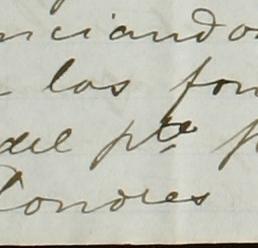 nciando
los fon
del pte
Londres